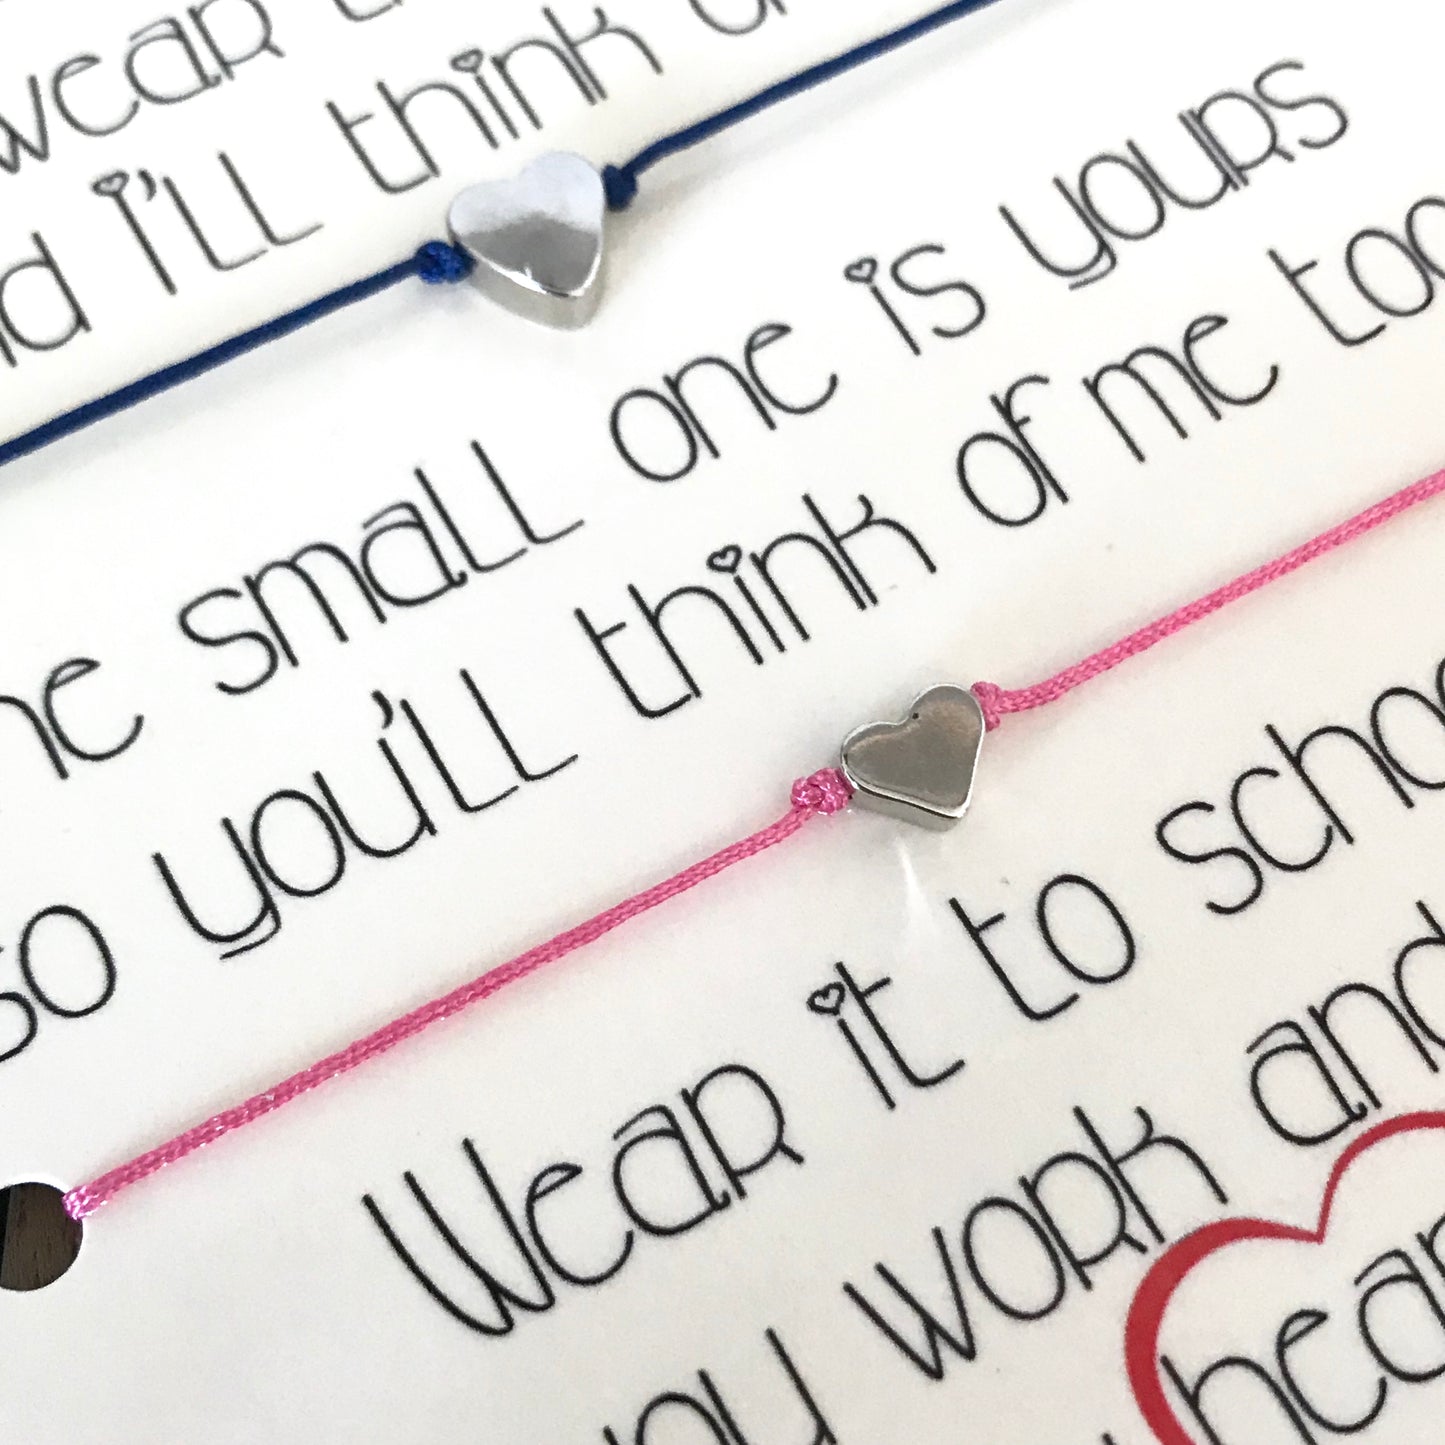 wear
I'LL think
small one is yours
so you'll think of me too
Wear it to
work and